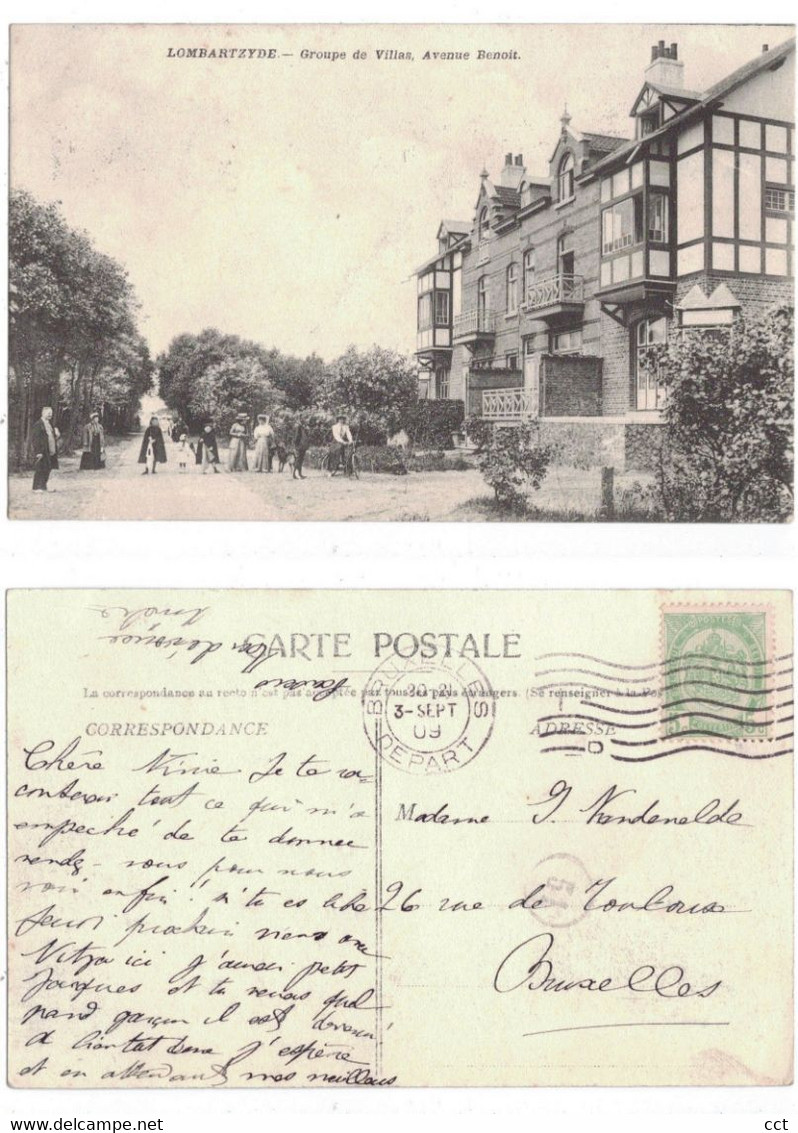 LOMBARTZYDE.— Groupe de Villas, Avenue Benoit.
CARTE POSTALE
La correspondance au recto n'est pas acceptée par tous les pays étrangers. (Se renseigner à la Pos
CORRESPONDANCE
ADRESSE
BRUXELLES
3-SEPT
09
DEPART
POSTES
Chère Ninie Je te ra-
conterai tout ce qui m'a
empeché de te donner
rendz-vous pour nous
voir enfin! si tu es libre
Jeudi prochain viens
ici j'aurai petit
Jacques et tu verras quel
grand garçon il est devenu
A bientot j'espère
et en attendant mes meilleurs
baisers
Madame J. Vandenelde
26 rue de Toulouse
Bruxelles
51
cct